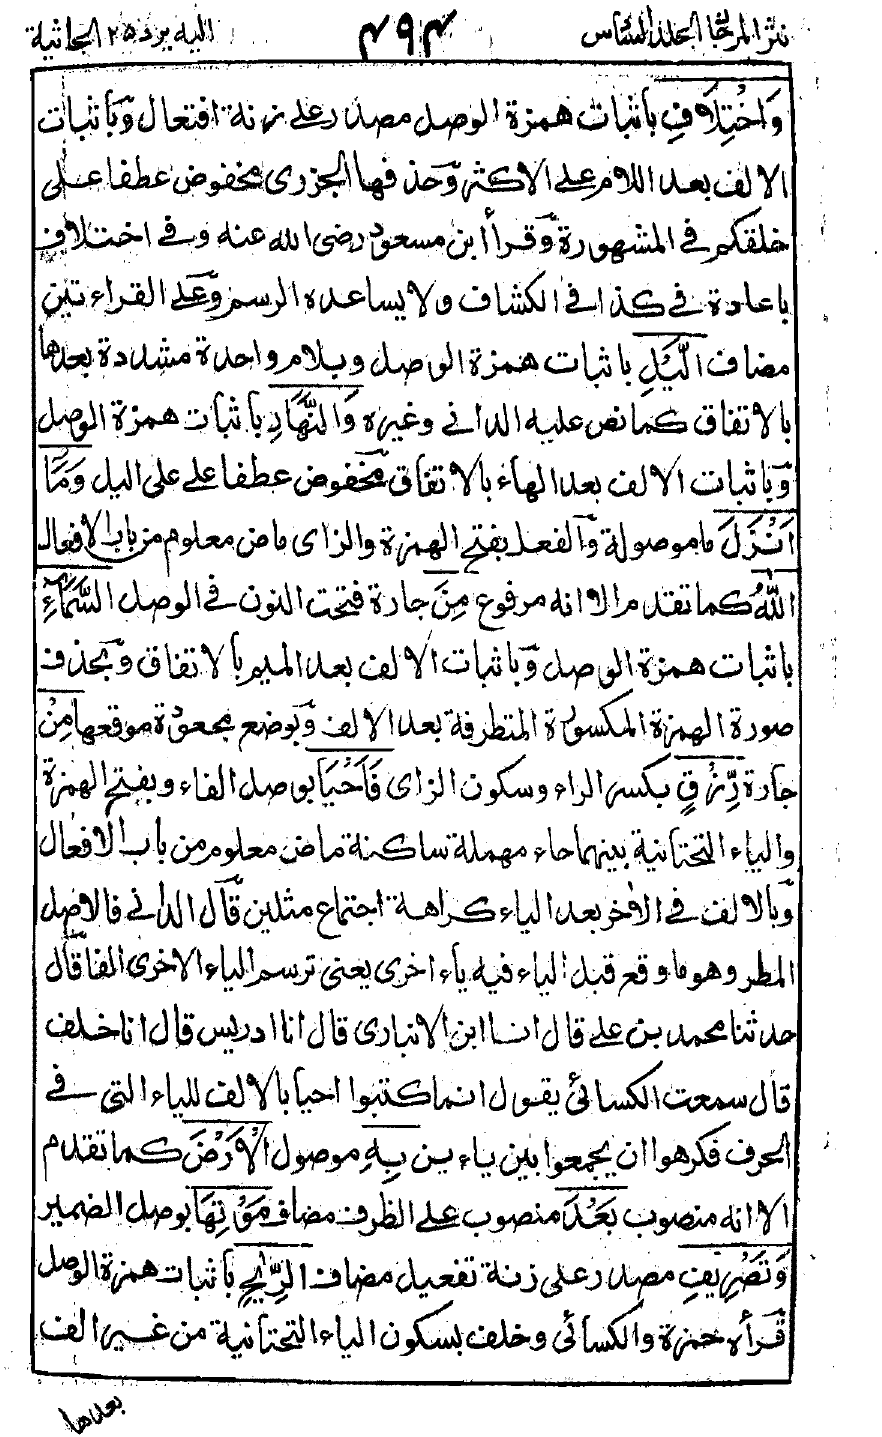 نثر المرجان الجلد السادس ٤٩٤ اليه يرد ٢٥ الجاثية
وَاخْتِلَافِ باثبات همزة الوصل مصدر على زنة افتعال وباثبات
الالف بعد اللام على الاكثر وحذفها الجزرى مخفوض عطفا على
خلقكم فى المشهورة وقرأ ابن مسعود رضى الله عنه وفى اختلاف
باعادة فى كذا فى الكشاف ولا يساعده الرسم وعلى القراءتين
مضاف الَّيْلِ باثبات همزة الوصل وبلام واحدة مشددة بعدها
بالاتفاق كما نص عليه الدانى وغيره وَالنَّهَارِ باثبات همزة الوصل
وباثبات الالف بعد الهاء بالاتفاق مخفوض عطفا على على اليل وَمَا
اَنْزَلَ ما موصولة والفعل بفتح الهمزة والزاى ماض معلوم من باب الافعال
اللّٰهُ كما تقدم الا انه مرفوع مِنَ جارة فتحت النون فى الوصل السَّمَاءِ
باثبات همزة الوصل وباثبات الالف بعد الميم بالاتفاق وبحذف
صورة الهمزة المكسورة المتطرفة بعد الالف وبوضع مجعودة موقعها مِنْ
جارة رِّزْقٍ بكسر الراء وسكون الزاى فَاَحْيَا بوصل الفاء وبفتح الهمزة
والياء التحتانية بينهما حاء مهملة ساكنة ماض معلوم من باب الافعال
وبالالف فى الاخر بعد الياء كراهة اجتماع مثلين قال الدانى فالاصل
المطرد وهو ما وقع قبل الياء فيه ياء اخرى يعنى ترسم الياء الاخرى الفا قال
حدثنا محمد بن على قال انا ابن الانبارى قال انا ادريس قال انا خلف
قال سمعت الكسائى يقول انما كتبوا احيا بالالف للياء التى فى
الحرف فكرهوا ان يجمعوا بين ياءين بِهِ موصول الْاَرْضَ كما تقدم
الا انه منصوب بَعْدَ منصوب على الظرف مضاف مَوْتِهَا بوصل الضمير
وَتَصْرِيفِ مصدر على زنة تفعيل مضاف الرِّيٰحِ باثبات همزة الوصل
قرأه حمزة والكسائى وخلف بسكون الياء التحتانية من غير الف
بعدها